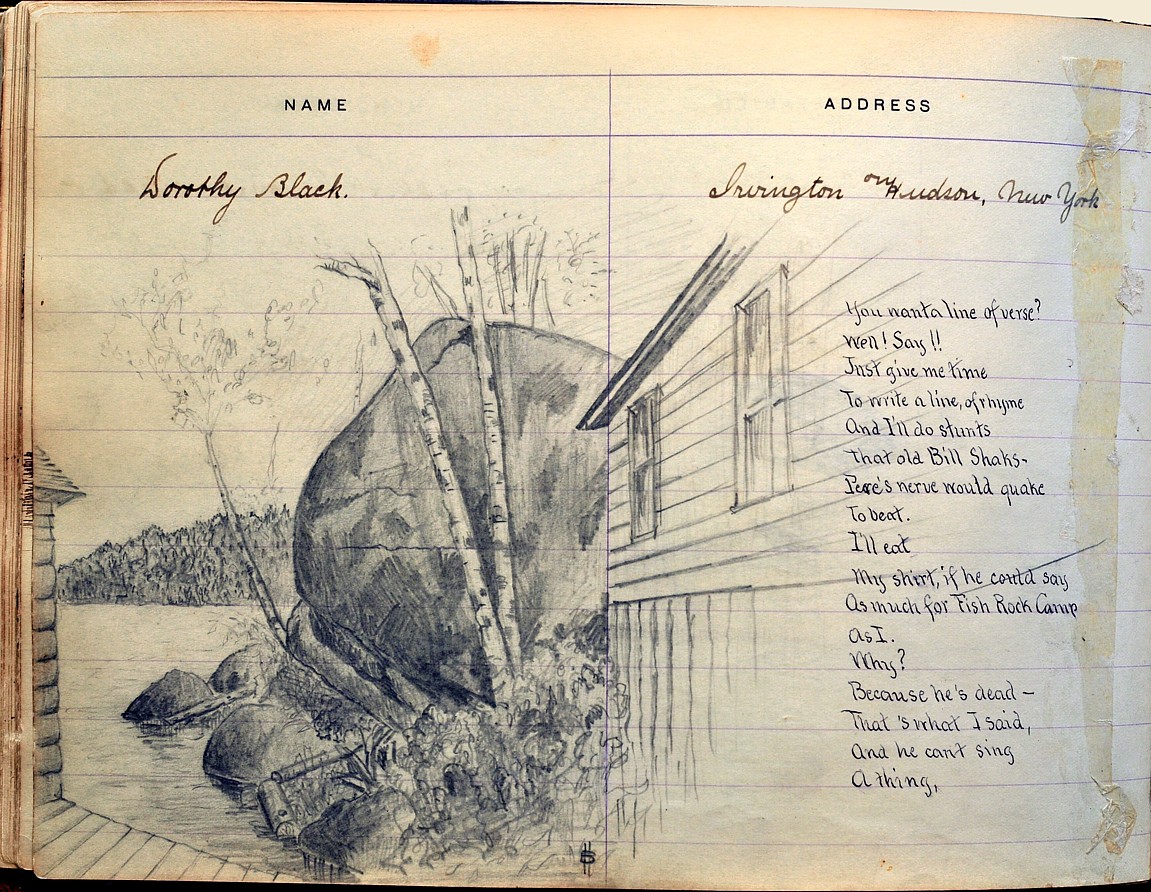 NAME
ADDRESS
Dorothy Black.
Irvington on Hudson, New York
You want a line of verse?
Well! Say!!
Just give me time
To write a line, of rhyme
And I'll do stunts
That old Bill Shaks-
Pere's nerve would quake
To beat.
I'll eat
My shirt, if he could say
As much for Fish Rock Camp
As I.
Why?
Because he's dead —
That's what I said,
And he can't sing
A thing,